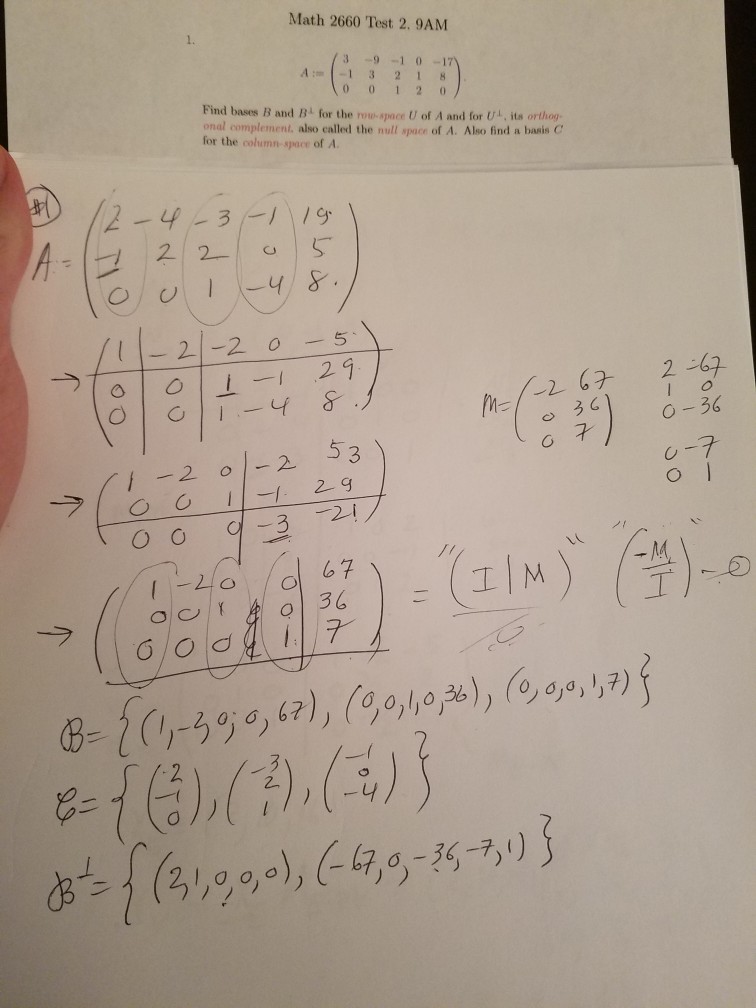 Math 2660 Test 2. 9AM
1.
A := ( 3 -9 -1 0 -17
-1 3 2 1 8
0 0 1 2 0 ).
Find bases B and B⊥ for the row-space U of A and for U⊥, its orthog-
onal complement, also called the null space of A. Also find a basis C
for the column-space of A.
#1
A = ( 2 -4 -3 -1 19
-1 2 2 0 5
0 0 1 -4 8. )
→ ( 1 -2 -2 0 -5
0 0 1 -1 29
0 0 1 -4 8. )
M = ( -2 67
0 36
0 7 )
2 -67
1 0
0 -36
0 -7
0 1
→ ( 1 -2 0 -2 53
0 0 1 -1 29
0 0 0 -3 -21 )
→ ( 1 -2 0 0 67
0 0 1 0 36
0 0 0 1 7 ) = "( I | M )" "( -M / I )"
B = { (1, -2, 0, 0, 67), (0, 0, 1, 0, 36), (0, 0, 0, 1, 7) }
C = { ( 2 -1 0 ), ( -3 2 1 ), ( -1 0 -4 ) }
B⊥ = { (2, 1, 0, 0, 0), (-67, 0, -36, -7, 1) }